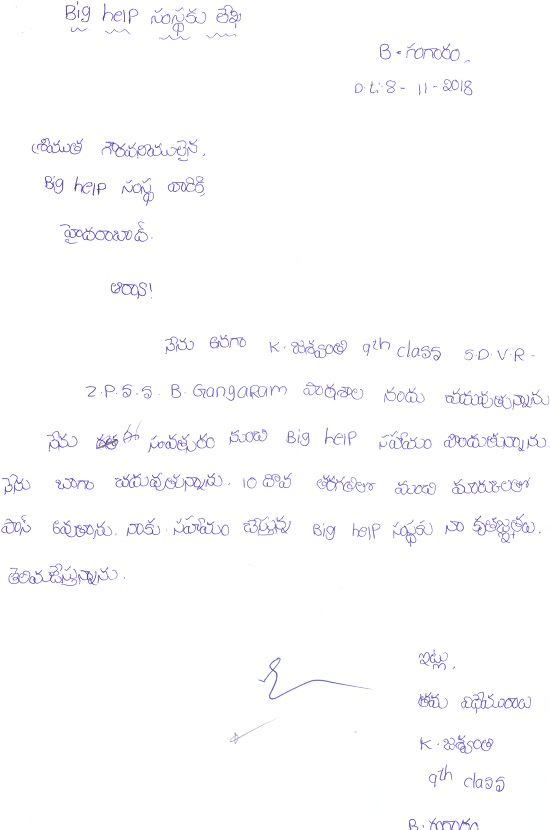 Big help సంస్థకు లేఖ
B. గంగారం,
D.t: 8 - 11 - 2018
శ్రీయుత గౌరవనీయులైన,
Big help సంస్థ వారికి
హైదరాబాద్.
ఆర్యా!
నేను అనగా K. జశ్వంతి 9th class S.D.V.R.
Z.P.S.S B. GangaRam పాఠశాల నందు చదువుతున్నాను
నేను సంవత్సరం నుండి Big help సహాయం పొందుతున్నాను.
నేను బాగా చదువుతున్నాను. 10 వ తరగతిలో మంచి మార్కులతో
పాస్ అవుతాను. నాకు సహాయం చేస్తున్న Big help సంస్థకు నా కృతజ్ఞతలు.
తెలియజేస్తున్నాను.
ఇట్లు,
తమ విధేయురాలు
K. జశ్వంతి
9th class
B. గంగారం